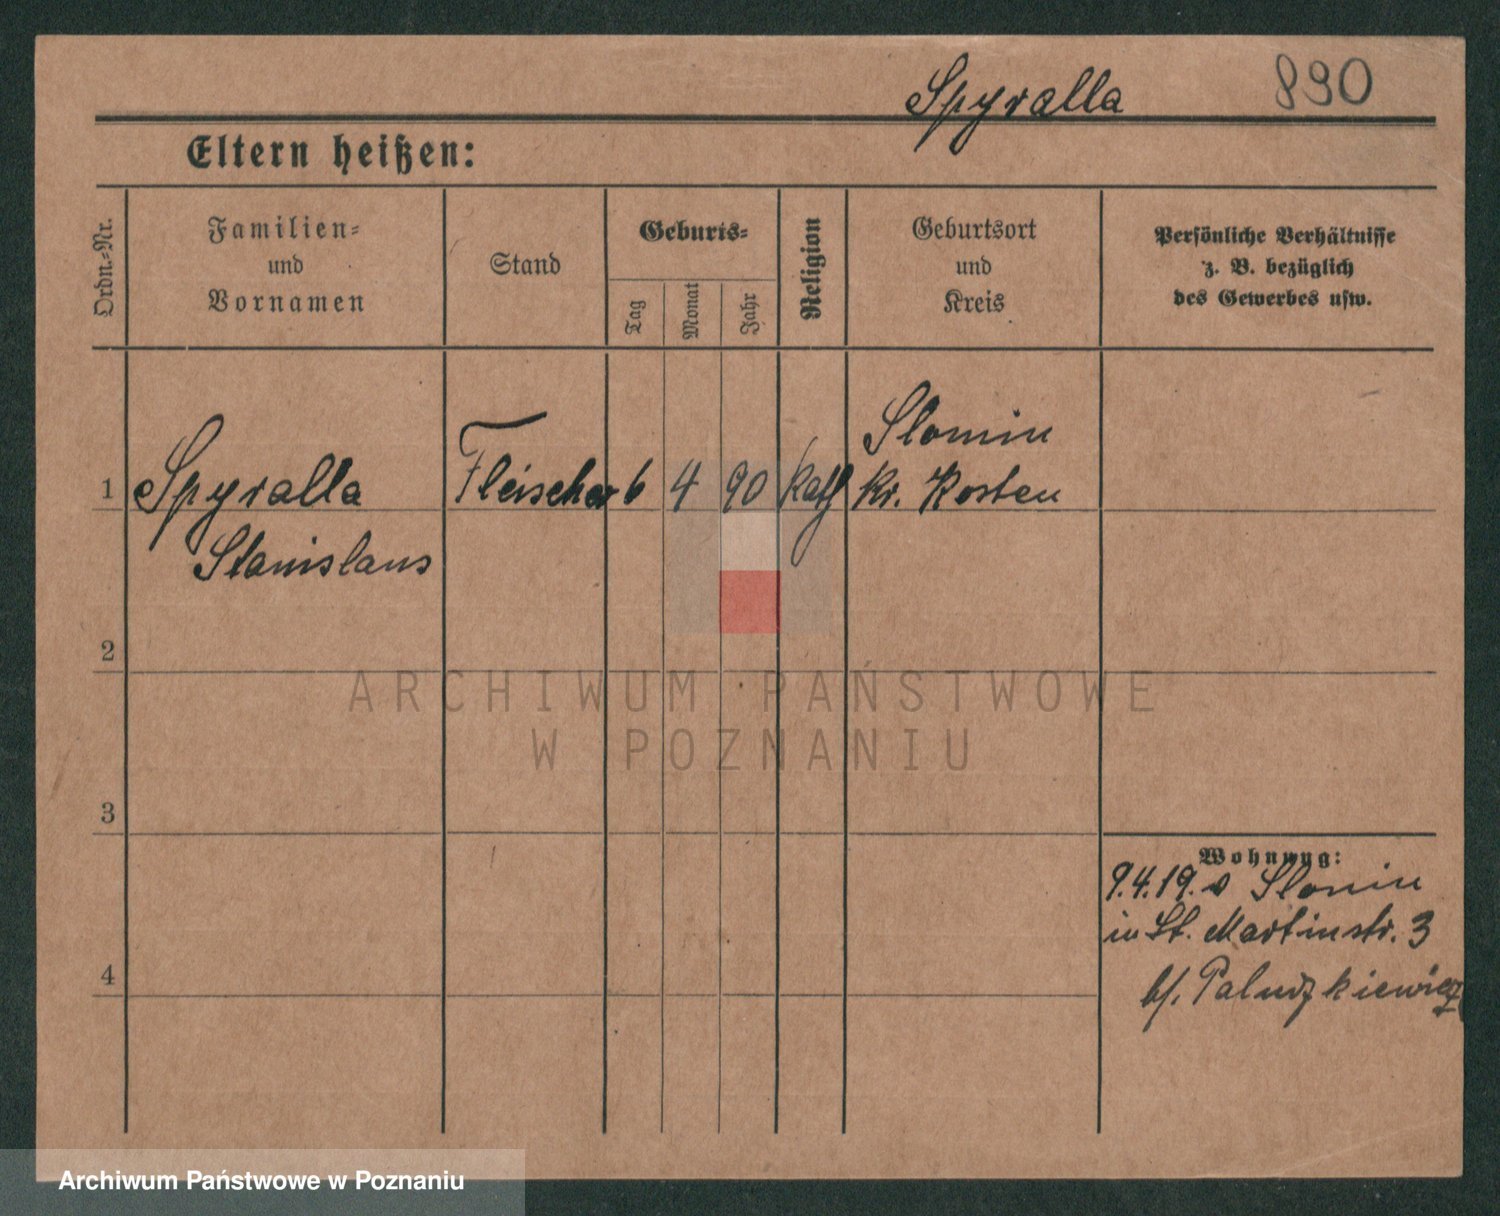 Spyralla 890
Eltern heißen:
Ordn.-Nr.
Familien-
und
Vornamen
Stand
Geburts-
Tag
Monat
Jahr
Religion
Geburtsort
und
Kreis
Persönliche Verhältnisse
z. B. bezüglich
des Gewerbes usw.
1 Spyralla Fleischer 6 4 90 kath Slomin
Kr. Kosten
Stanislaus
2
ARCHIWUM PAŃSTWOWE
W POZNANIU
3
Wohnung:
9.4.19. v Slonin
in St. Martinstr. 3
4
b/. Paludzkiewicz
Archiwum Państwowe w Poznaniu